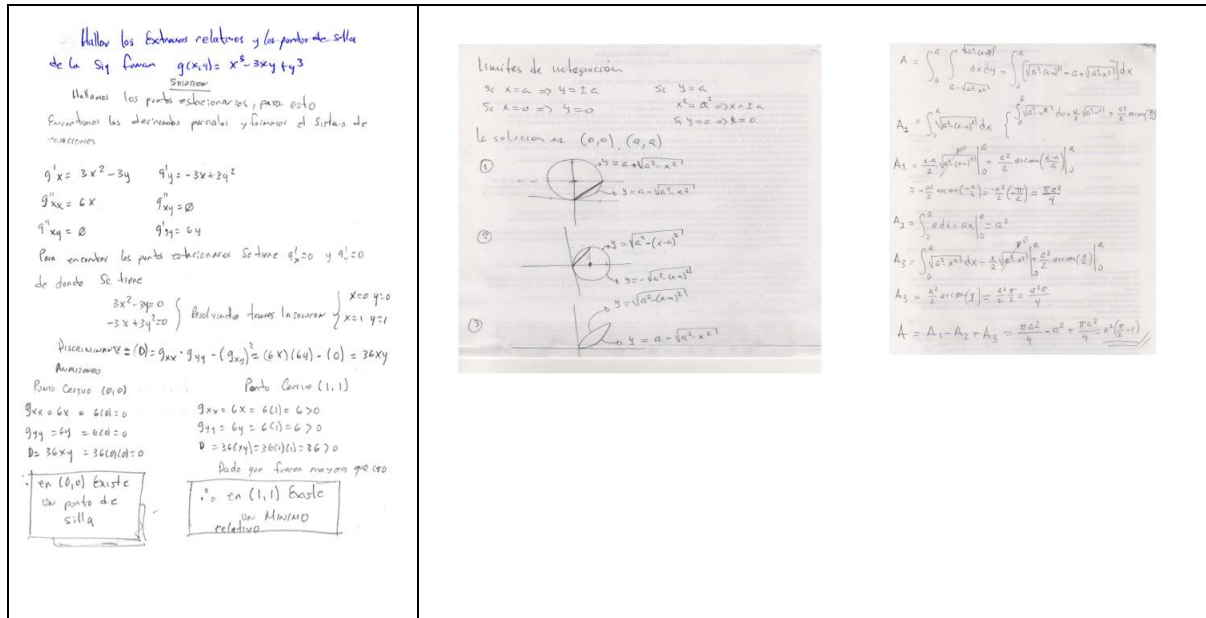 Hallar los Extremos relativos y los puntos de silla
de la Sig funcion g(x,y)= x³-3xy+y³
Solucion
Hallamos los puntos estacionarios, para esto
Encontramos las derivadas parciales y formamos el Sistema de
ecuaciones
g'x = 3x²-3y g'y = -3x+3y²
g''xx = 6x g''xy = Ø
g''xy = Ø g''yy = 6y
Para encontrar los puntos estacionarios Se tiene g'x=0 y g'y=0
de donde Se tiene
3x²-3y=0
-3x+3y²=0 } Resolviendo tenemos la solucion { x=0 y=0
x=1 y=1
Discriminante = (D) = gxx · gyy - (gxy)² = (6x)(6y) - (0) = 36xy
Analizando
Punto Critico (0,0)
gxx = 6x = 6(0) = 0
gyy = 6y = 6(0) = 0
D = 36xy = 36(0)(0) = 0
∴ en (0,0) Existe
un punto de
silla
Punto Critico (1,1)
gxx = 6x = 6(1) = 6 > 0
gyy = 6y = 6(1) = 6 > 0
D = 36(xy) = 36(1)(1) = 36 > 0
Dado que fueron mayores que cero
∴ en (1,1) Existe
un Minimo
relativo
Limites de integracción
Si x=a => y=±a
Si x=0 => y=0
Si y=a
x²=a² => x=±a
Si y=0 => x=0
la solucion es (0,0), (a,a)
①
y=a+√(a²-x²)
y=a-√(a²-x²)
②
y=√(a²-(x-a)²)
y=-√(a²-(x-a)²)
③
y=√(a²-(x-a)²)
y=a-√(a²-x²)
A₂ = ∫₀ᵃ a dx = ax|₀ᵃ = a²
A₃ = a²/2 arcsen(1) = a²/2 π/2 = a²π/4
A = A₁ - A₂ + A₃ = πa²/4 - a² + πa²/4 = a²(π/2 - 1)